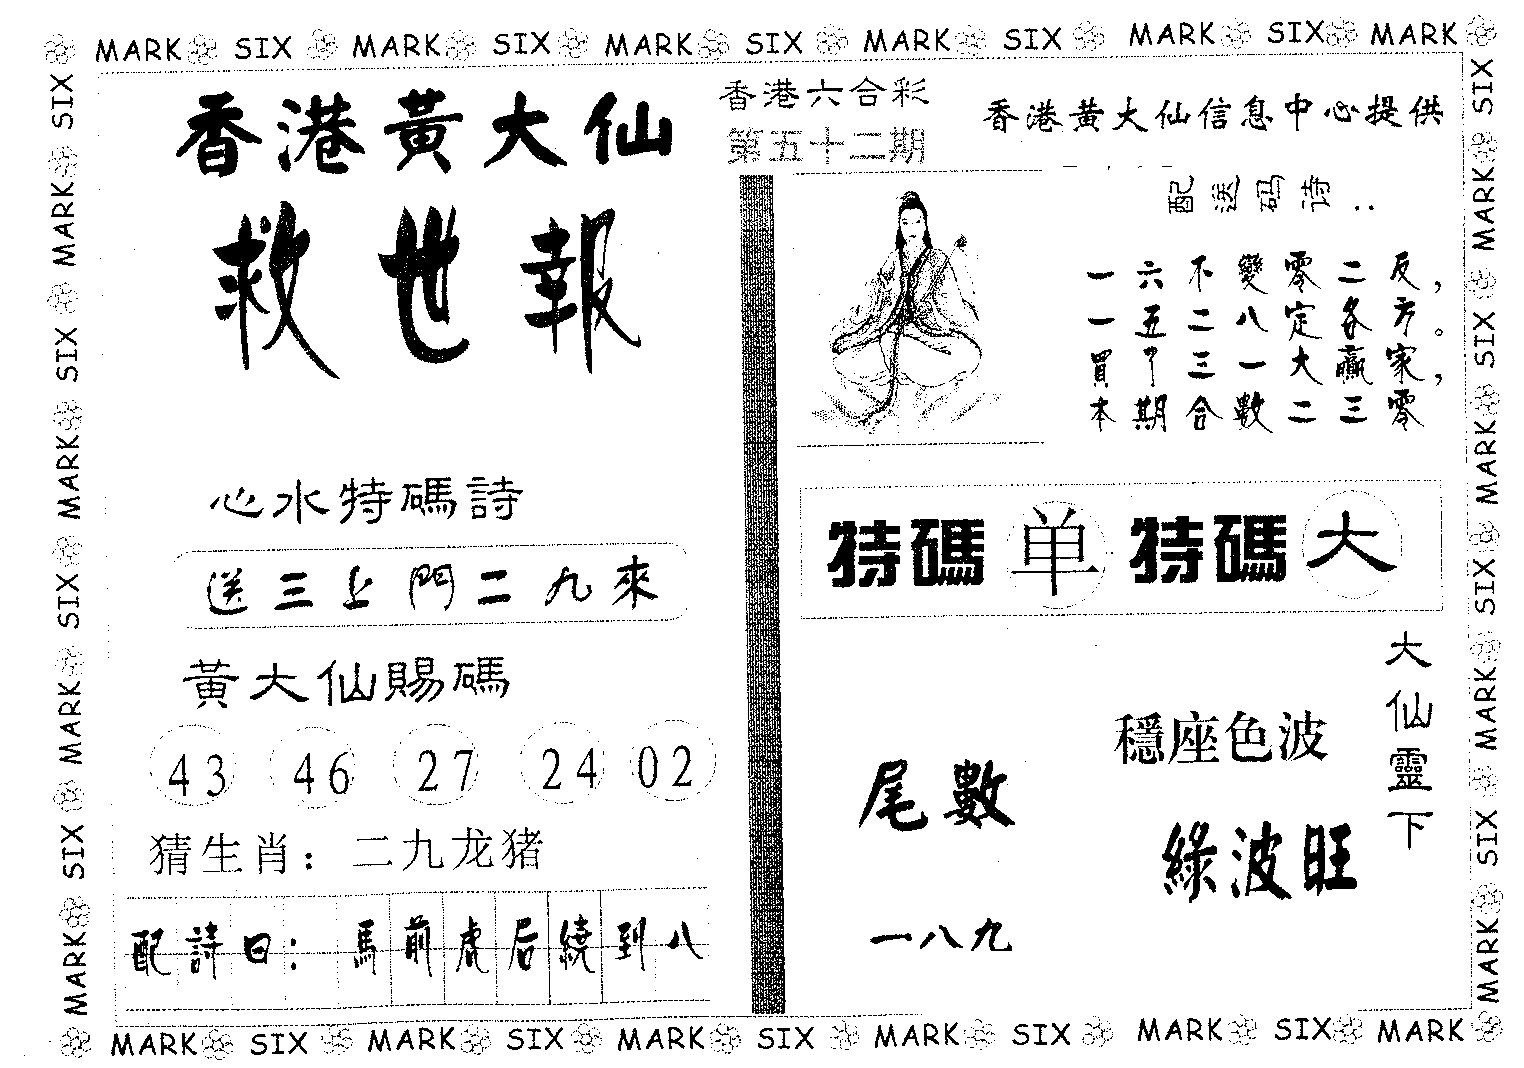 MARK SIX MARK SIX MARK SIX MARK SIX MARK SIX MARK
香港黃大仙
救世報
心水特碼詩
送三上門二九來
黃大仙賜碼
43 46 27 24 02
猜生肖：二九龙猪
配詩曰：馬前虎后繞到八
香港六合彩
第五十二期
香港黃大仙信息中心提供
配送码诗：
一六不變零二反，
一五二八定各方。
買了三一大贏家，
本期合數二三零
特碼单特碼大
大仙靈下
穩座色波
綠波旺
尾數
一八九
SIX MARK SIX MARK SIX MARK SIX MARK
SIX MARK SIX MARK SIX MARK SIX MARK
MARK SIX MARK SIX MARK SIX MARK SIX MARK SIX MARK